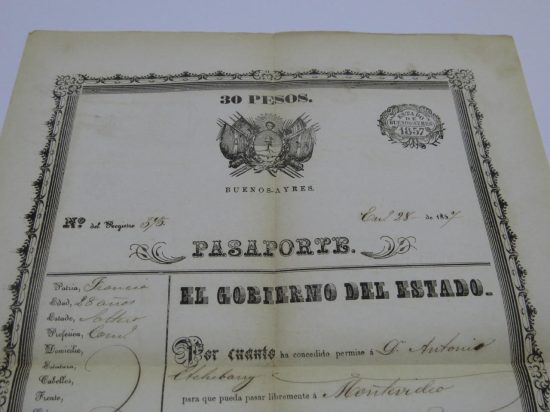 30 PESOS.
ESTADO
DE
BUENOS-AYRES
1857
BUENOS-AYRES.
Nº del Registro 375. En.º 28 de 1857
PASAPORTE.
EL GOBIERNO DEL ESTADO.
Patria, Francia
Edad, 28 años
Estado, Soltero
Profesion, Com.º
Domicilio,
Estatura,
Cabellos,
Frente,
Por cuanto ha concedido permiso á D. Antonio
Etchebany
para que pueda pasar libremente á Montevideo